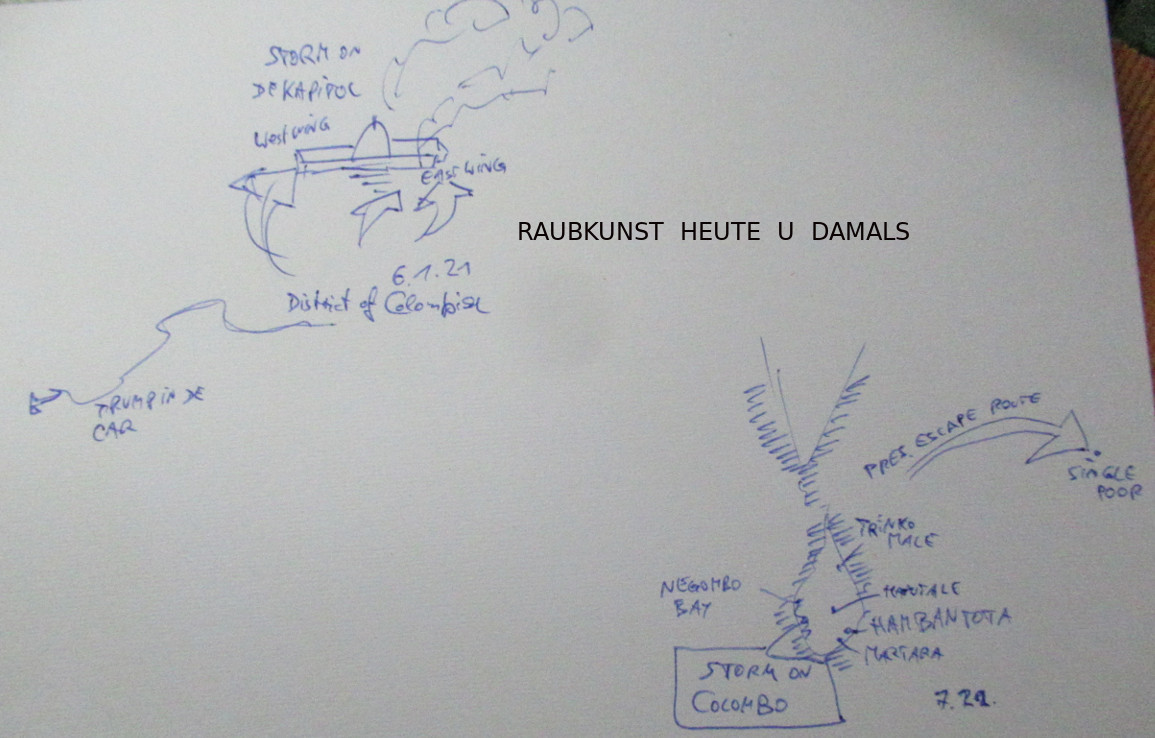 STORM ON
DE KAPITOL
West WING
EAST WING
RAUBKUNST HEUTE U DAMALS
6.1.21
District of Colombia
TRUMP IN DE
CAR
PRES. ESCAPE ROUTE
SINGLE
POOR
TRINKO
MALE
NEGOMBO
BAY
HAMBANTOTA
MARTARA
STORM ON
COLOMBO
7.22.